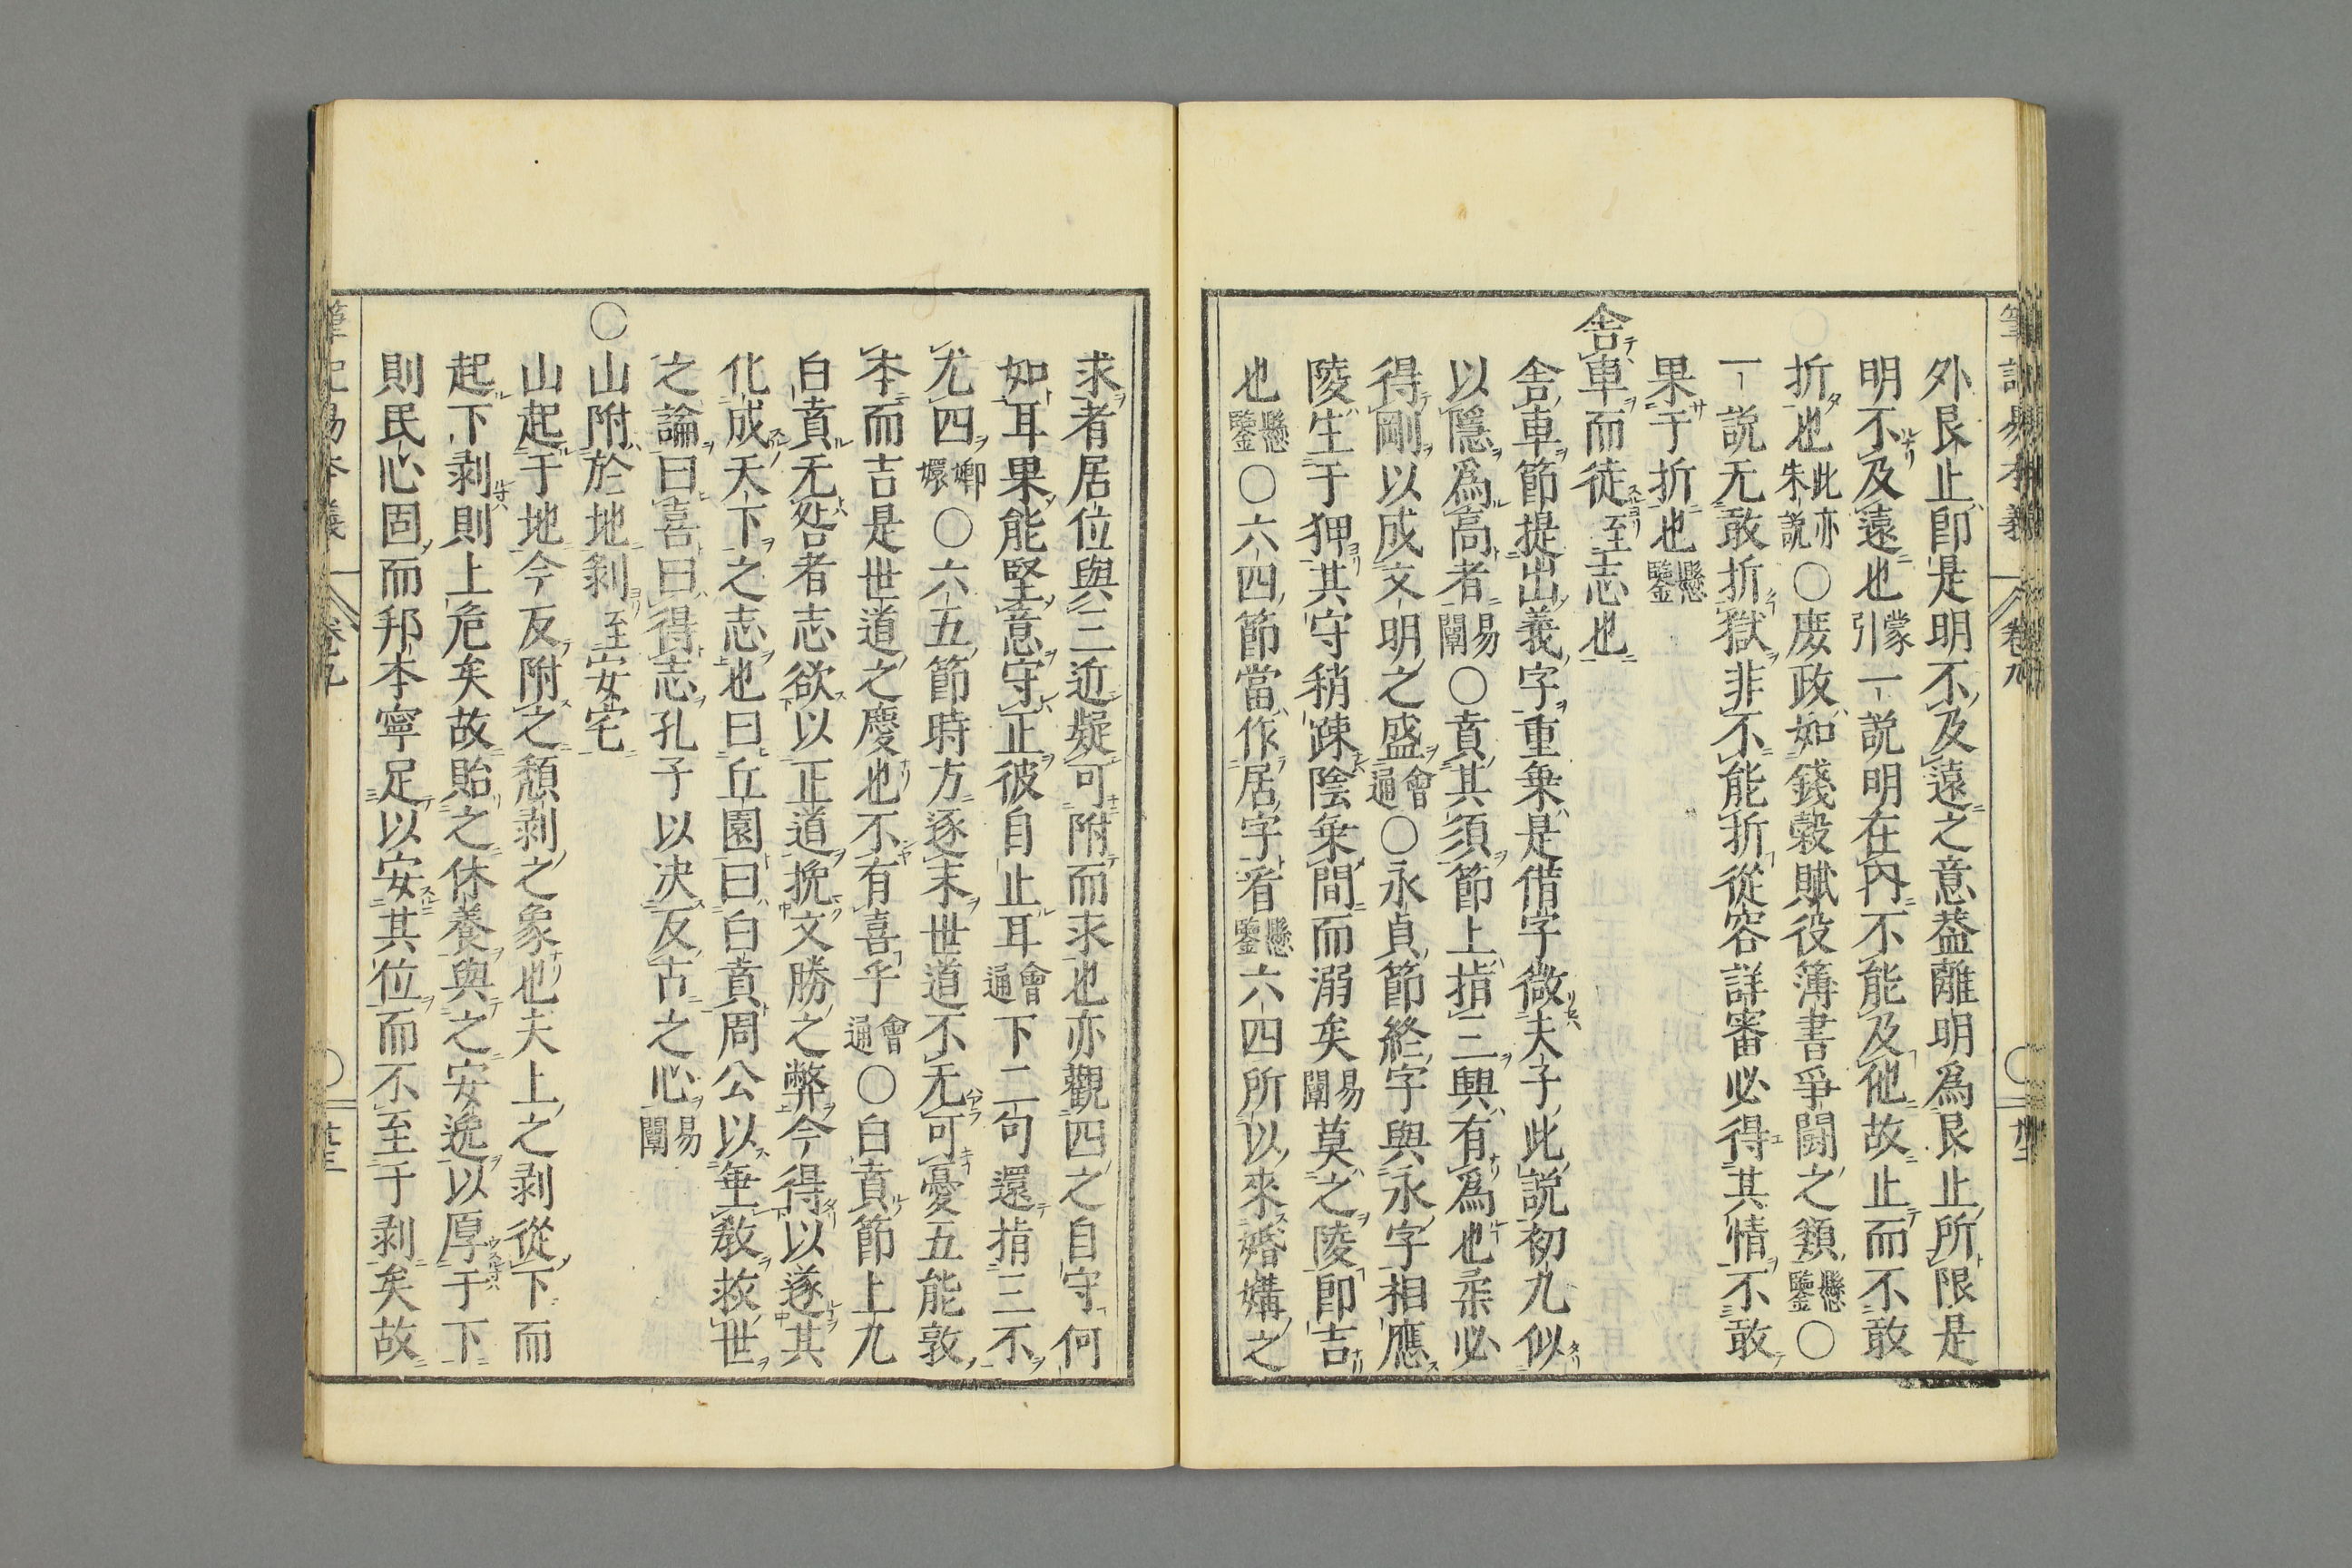 外艮止卽是明不及遠之意葢離明爲艮止所限是
明不及遠也蒙引一說明在內不能及他故止而不敢
折也此亦朱說〇庶政如錢穀賦役簿書爭鬪之類懸鑒〇
一說无敢折獄非不能折從容詳審必得其情不敢
果于折也懸鑒
舍車而徒至志也
舍車節提出義字重乗是借字微夫子此說初九似
以隱爲高者易闡〇賁其須節上指三興有爲也柔必
得剛以成文明之盛會通〇永貞節終字與永字相應
陵生于狎其守稍踈陰乗間而溺矣易闡莫之陵卽吉
也懸鑒〇六四節當作居字看懸鑒六四所以來婚媾之
求者居位與三近疑可附而求也亦觀四之自守何
如耳果能堅意守正彼自止耳會通下二句還指三不
尤四嫏嬛〇六五節時方逐末世道不无可憂五能敦
本而吉是世道之慶也不有喜乎會通〇白賁節上九
白賁无咎者志欲以正道挽文勝之弊今得以遂其
化成天下之志也曰丘園曰白賁周公以垂敎救世
之論曰喜曰得志孔子以决反古之心易闡
〇山附於地剝至安宅
山起于地今反附之頽剥之象也夫上之剥從下而
起下剥則上危矣故貽之休養與之安逸以厚于下
則民心固而邦本寧足以安其位而不至于剥矣故
筆記易本義 卷九 〇